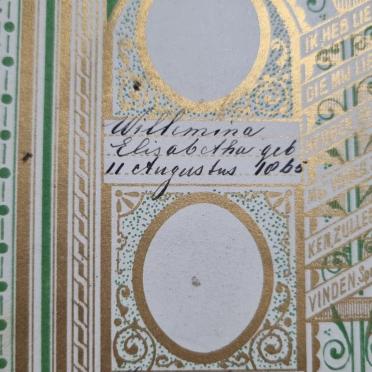 Willemina
Elizabetha geb
11 Augustus 1865
IK HEB LIE
DIE MIJ LIE
KEN, ZULLE
VINDEN. Spr